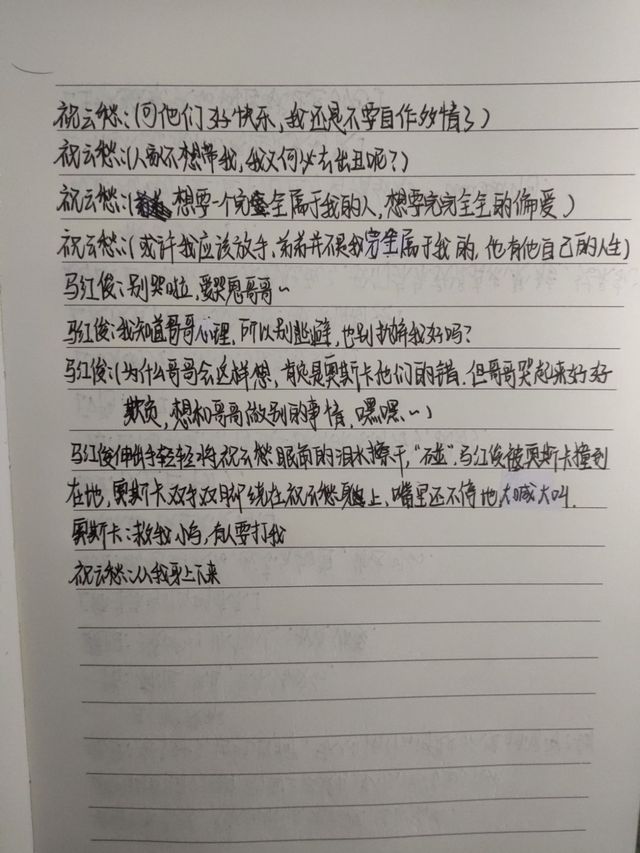 祝云愁:(问他们好快乐,我还是不要自作多情了)
祝云愁:(人家不想带我,我又何必去出丑呢?)
祝云愁:(想要一个完整全属于我的人,想要完完全全的偏爱)
祝云愁:(或许我应该放手,弟弟并不是我完全属于我的,他有他自己的人生)
马红俊:别哭啦,爱哭鬼哥哥~
马红俊:我知道哥哥心理,所以别逃避,也别拆解我好吗?
马红俊:(为什么哥哥会这样想,肯定是奥斯卡他们的错.但哥哥哭起来好好
欺负,想和哥哥做别的事情,嘿嘿~)
马红俊伸出手轻轻将祝云愁眼角的泪水擦干,“碰”.马红俊被奥斯卡撞到
在地,奥斯卡双手双脚绕在祝云愁身上,嘴里还不停地大喊大叫.
奥斯卡:救我小鸟,有人要打我
祝云愁:从我身上下来